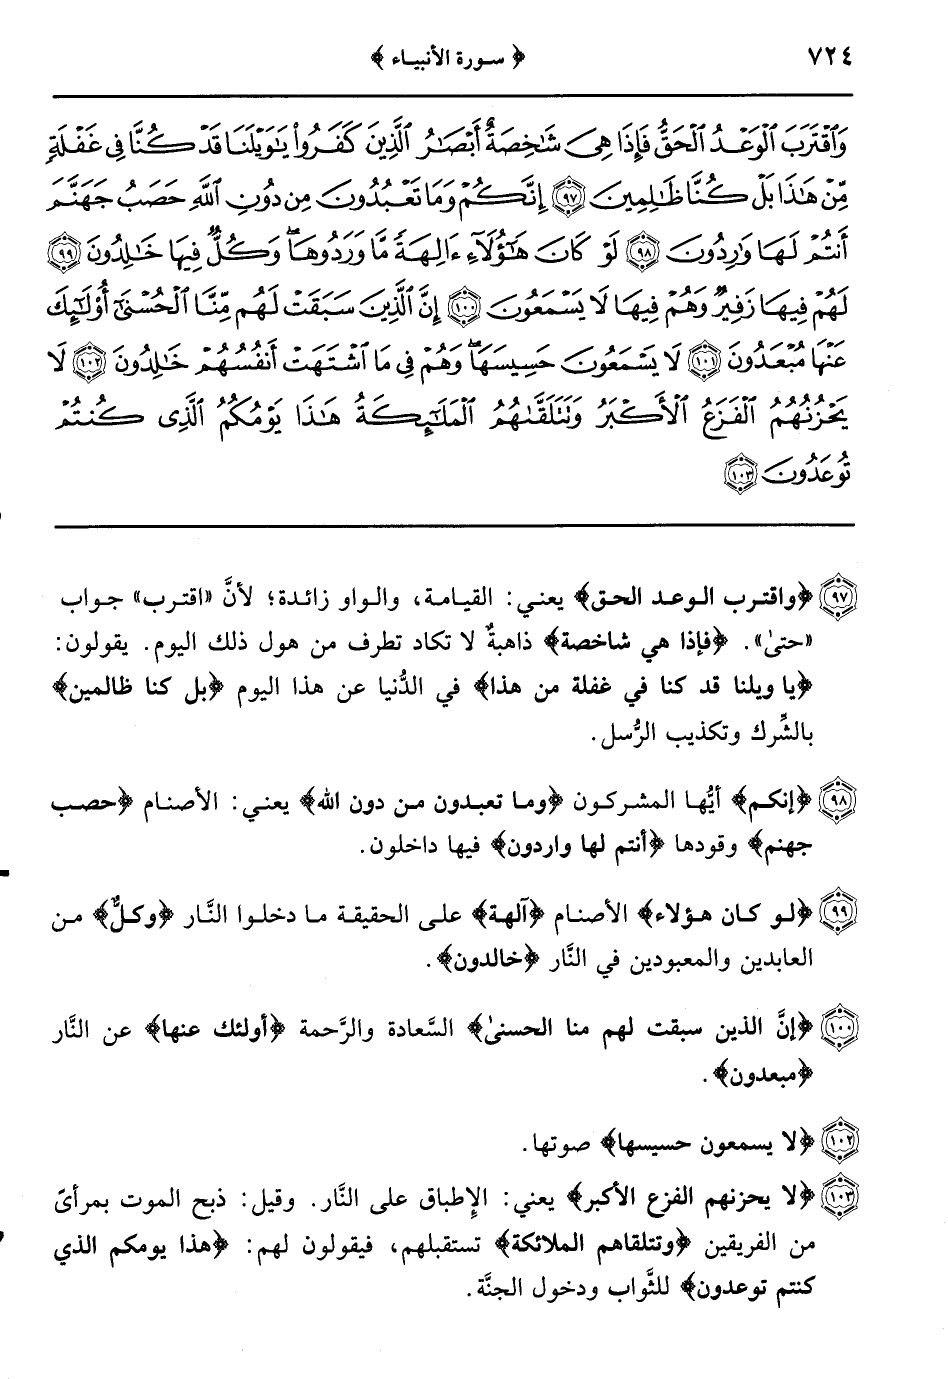 ٧٢٤ ﴿ سورة الأنبياء ﴾
وَٱقْتَرَبَ ٱلْوَعْدُ ٱلْحَقُّ فَإِذَا هِىَ شَٰخِصَةٌ أَبْصَٰرُ ٱلَّذِينَ كَفَرُوا۟ يَٰوَيْلَنَا قَدْ كُنَّا فِى غَفْلَةٍ
مِّنْ هَٰذَا بَلْ كُنَّا ظَٰلِمِينَ ٩٧ إِنَّكُمْ وَمَا تَعْبُدُونَ مِن دُونِ ٱللَّهِ حَصَبُ جَهَنَّمَ
أَنتُمْ لَهَا وَٰرِدُونَ ٩٨ لَوْ كَانَ هَٰٓؤُلَآءِ ءَالِهَةً مَّا وَرَدُوهَا ۖ وَكُلٌّ فِيهَا خَٰلِدُونَ ٩٩
لَهُمْ فِيهَا زَفِيرٌ وَهُمْ فِيهَا لَا يَسْمَعُونَ ١٠٠ إِنَّ ٱلَّذِينَ سَبَقَتْ لَهُم مِّنَّا ٱلْحُسْنَىٰٓ أُو۟لَٰٓئِكَ
عَنْهَا مُبْعَدُونَ ١٠١ لَا يَسْمَعُونَ حَسِيسَهَا ۖ وَهُمْ فِى مَا ٱشْتَهَتْ أَنفُسُهُمْ خَٰلِدُونَ ١٠٢ لَا
يَحْزُنُهُمُ ٱلْفَزَعُ ٱلْأَكْبَرُ وَتَتَلَقَّىٰهُمُ ٱلْمَلَٰٓئِكَةُ هَٰذَا يَوْمُكُمُ ٱلَّذِى كُنتُمْ
تُوعَدُونَ ١٠٣
٩٧ ﴿واقترب الوعد الحق﴾ يعني: القيامة، والواو زائدة؛ لأنَّ «اقترب» جواب
«حتىٰ». ﴿فإذا هي شاخصة﴾ ذاهبةٌ لا تكاد تطرف من هول ذلك اليوم. يقولون:
﴿يا ويلنا قد كنا في غفلة من هذا﴾ في الدُّنيا عن هذا اليوم ﴿بل كنا ظالمين﴾
بالشِّرك وتكذيب الرُّسل.
٩٨ ﴿إنكم﴾ أيُّها المشركون ﴿وما تعبدون من دون الله﴾ يعني: الأصنام ﴿حصب
جهنم﴾ وقودها ﴿أنتم لها واردون﴾ فيها داخلون.
٩٩ ﴿لو كان هؤلاء﴾ الأصنام ﴿آلهة﴾ على الحقيقة ما دخلوا النَّار ﴿وكلٌّ﴾ من
العابدين والمعبودين في النَّار ﴿خالدون﴾.
١٠٠ ﴿إنَّ الذين سبقت لهم منا الحسنىٰ﴾ السَّعادة والرَّحمة ﴿أولئك عنها﴾ عن النَّار
﴿مبعدون﴾.
١٠٢ ﴿لا يسمعون حسيسها﴾ صوتها.
١٠٣ ﴿لا يحزنهم الفزع الأكبر﴾ يعني: الإِطباق على النَّار. وقيل: ذبح الموت بمرأىً
من الفريقين ﴿وتتلقاهم الملائكة﴾ تستقبلهم، فيقولون لهم: ﴿هذا يومكم الذي
كنتم توعدون﴾ للثَّواب ودخول الجنَّة.